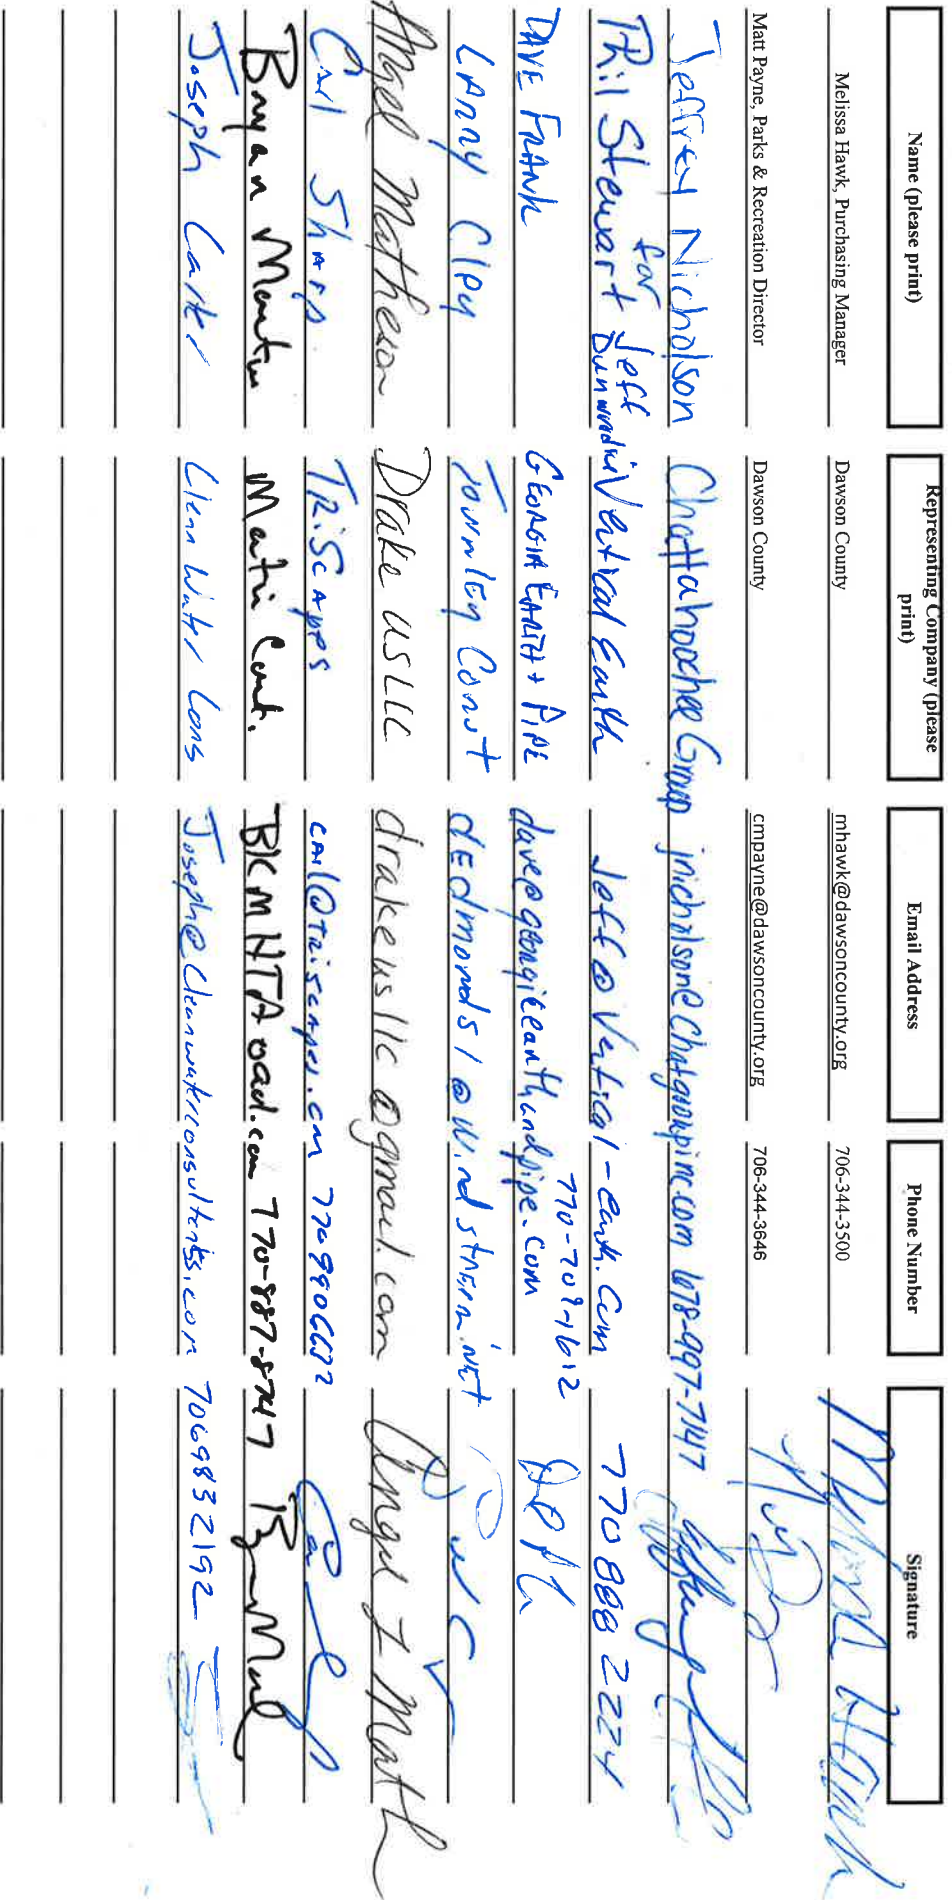 Name (please print) Representing Company (please print) Email Address Phone Number Signature
Melissa Hawk, Purchasing Manager Dawson County mhawk@dawsoncounty.org 706-344-3500 Melissa Hawk
Matt Payne, Parks & Recreation Director Dawson County cmpayne@dawsoncounty.org 706-344-3646
Jeffrey Nicholson Chattahoochee Group jnicholson@chatgroupinc.com 678-997-7147
Phil Stewart for Jeff Vertical Earth Jeff@Vertical-earth.com 770 888 2224
DAVE FRANK GEORGIA EARTH + PIPE dave@georgiaearthandpipe.com 770-709-1612
LARRY Townley Const dEdmonds1@windstream.net
Angel Matheson Drake US LLC drakeusllc@gmail.com Angel I Math
Carl Sharp TRiScApes CARl@TRiscapes.com 7709906632
Bryan Martin Matrix Cont. BKMHTA@aol.com 770-887-8747
Joseph Carter Clean Water Cons Joseph@Cleanwaterconsultants.com 7069832192